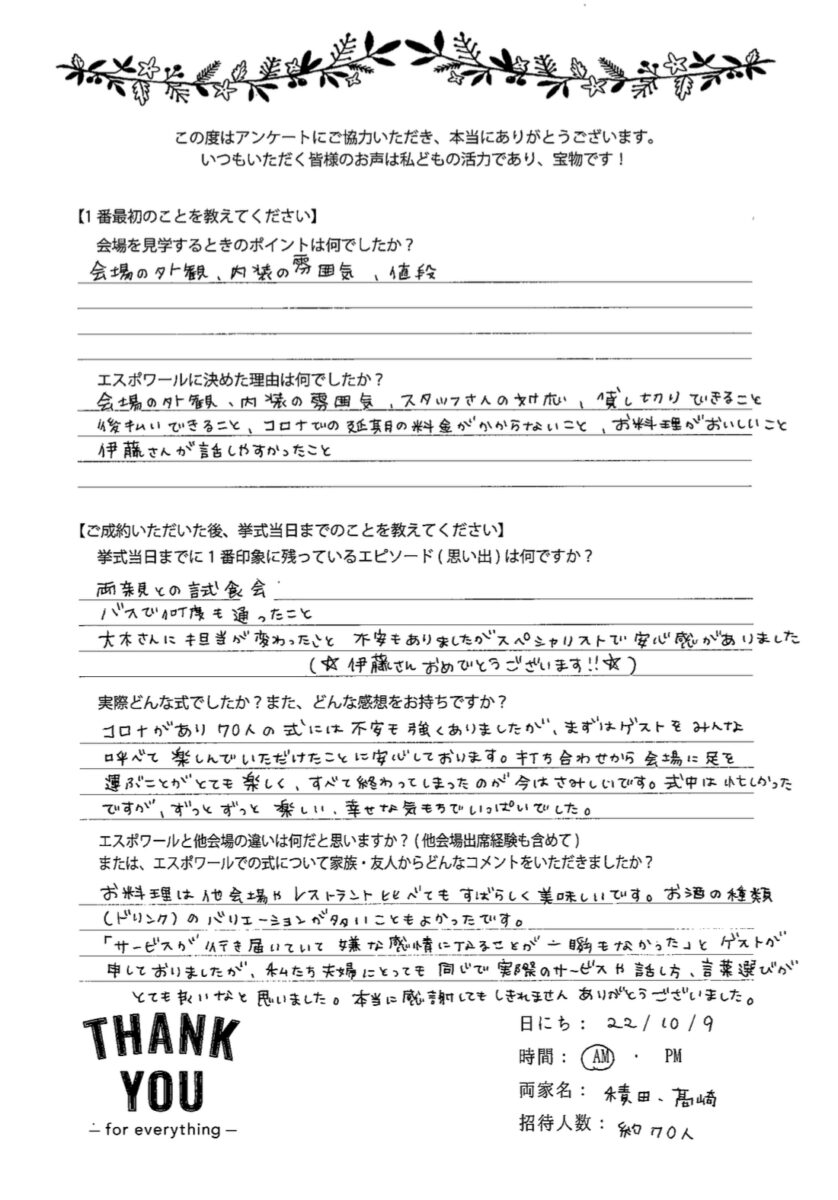 この度はアンケートにご協力いただき、本当にありがとうございます。
いつもいただく皆様のお声は私どもの活力であり、宝物です！
【1番最初のことを教えてください】
会場を見学するときのポイントは何でしたか？
会場の外観、内装の雰囲気、値段
エスポワールに決めた理由は何でしたか？
会場の外観、内装の雰囲気、スタッフさんの対応、貸し切りできること
後払いできること、コロナでの延期の料金がかからないこと、お料理がおいしいこと
伊藤さんが話しやすかったこと
【ご成約いただいた後、挙式当日までのことを教えてください】
挙式当日までに1番印象に残っているエピソード(思い出)は何ですか？
両親との試食会
バスで何度も通ったこと
大木さんに担当が変わったこと 不安もありましたがスペシャリストで安心感がありました
(☆伊藤さんおめでとうございます!!☆)
実際どんな式でしたか？また、どんな感想をお持ちですか？
コロナがあり70人の式には不安も強くありましたが、まずはゲストをみんな
呼べて楽しんでいただけたことに安心しております。打ち合わせから会場に足を
運ぶことがとても楽しく、すべて終わってしまったのが今はさみしいです。式中は忙しかった
ですが、ずっとずっと楽しい、幸せな気もちでいっぱいでした。
エスポワールと他会場の違いは何だと思いますか？(他会場出席経験も含めて)
または、エスポワールでの式について家族・友人からどんなコメントをいただきましたか？
お料理は他会場やレストラントと比べてもすばらしく美味しいです。お酒の種類
(ドリンク)のバリエーションが多いこともよかったです。
「サービスが行き届いていて嫌な感情になることが一瞬もなかった」とゲストが
申しておりましたが、私たち夫婦にとっても同じで実際のサービスや話し方、言葉選びが
とても な と思いました。本当に感謝してもしきれません ありがとうございました。
THANK
YOU
– for everything –
日にち： 22/10/9
時間： AM ・ PM
両家名： 積田、髙崎
招待人数： 約70人